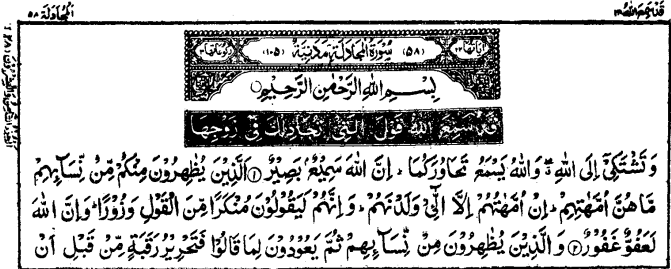 قد سمع الله ٢٨
المجادلة ٥٨
اٰیاتها ٢٢ (٥٨) سُوْرَةُ الْمُجَادَلَةِ مَدَنِیَّةٌ (١٠٥) رکوعاتها ٣
بِسْمِ اللهِ الرَّحْمٰنِ الرَّحِیْمِ
قَدْ سَمِعَ اللهُ قَوْلَ الَّتِیْ تُجَادِلُكَ فِیْ زَوْجِهَا
وَ تَشْتَكِیْۤ اِلَى اللهِ ۖۗ وَاللهُ یَسْمَعُ تَحَاوُرَكُمَا ؕ اِنَّ اللهَ سَمِیْعٌۢ بَصِیْرٌ ۝١ اَلَّذِیْنَ یُظٰهِرُوْنَ مِنْكُمْ مِّنْ نِّسَآىِٕهِمْ
مَّا هُنَّ اُمَّهٰتِهِمْ ؕ اِنْ اُمَّهٰتُهُمْ اِلَّا الّٰٓـِٔیْ وَلَدْنَهُمْ ؕ وَ اِنَّهُمْ لَیَقُوْلُوْنَ مُنْكَرًا مِّنَ الْقَوْلِ وَ زُوْرًا ؕ وَ اِنَّ اللهَ
لَعَفُوٌّ غَفُوْرٌ ۝٢ وَ الَّذِیْنَ یُظٰهِرُوْنَ مِنْ نِّسَآىِٕهِمْ ثُمَّ یَعُوْدُوْنَ لِمَا قَالُوْا فَتَحْرِیْرُ رَقَبَةٍ مِّنْ قَبْلِ اَنْ